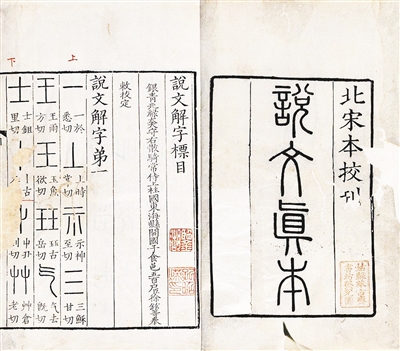 北宋本校刊
說文眞本
上
下
說文解字標目
銀青光祿大夫守右散騎常侍上柱國東海縣開國子食邑五百戶臣徐鉉等奉
敕校定
說文解字第一
一 一於悉切 丄 上時掌切 示 示神至切 三 三穌甘切
王 王雨方切 玉 玉魚欲切 玨 玨古岳切 气 气去旣切
士 士鉏里切 丨 丨古本切 屮 屮丑列切 艸 艸倉老切